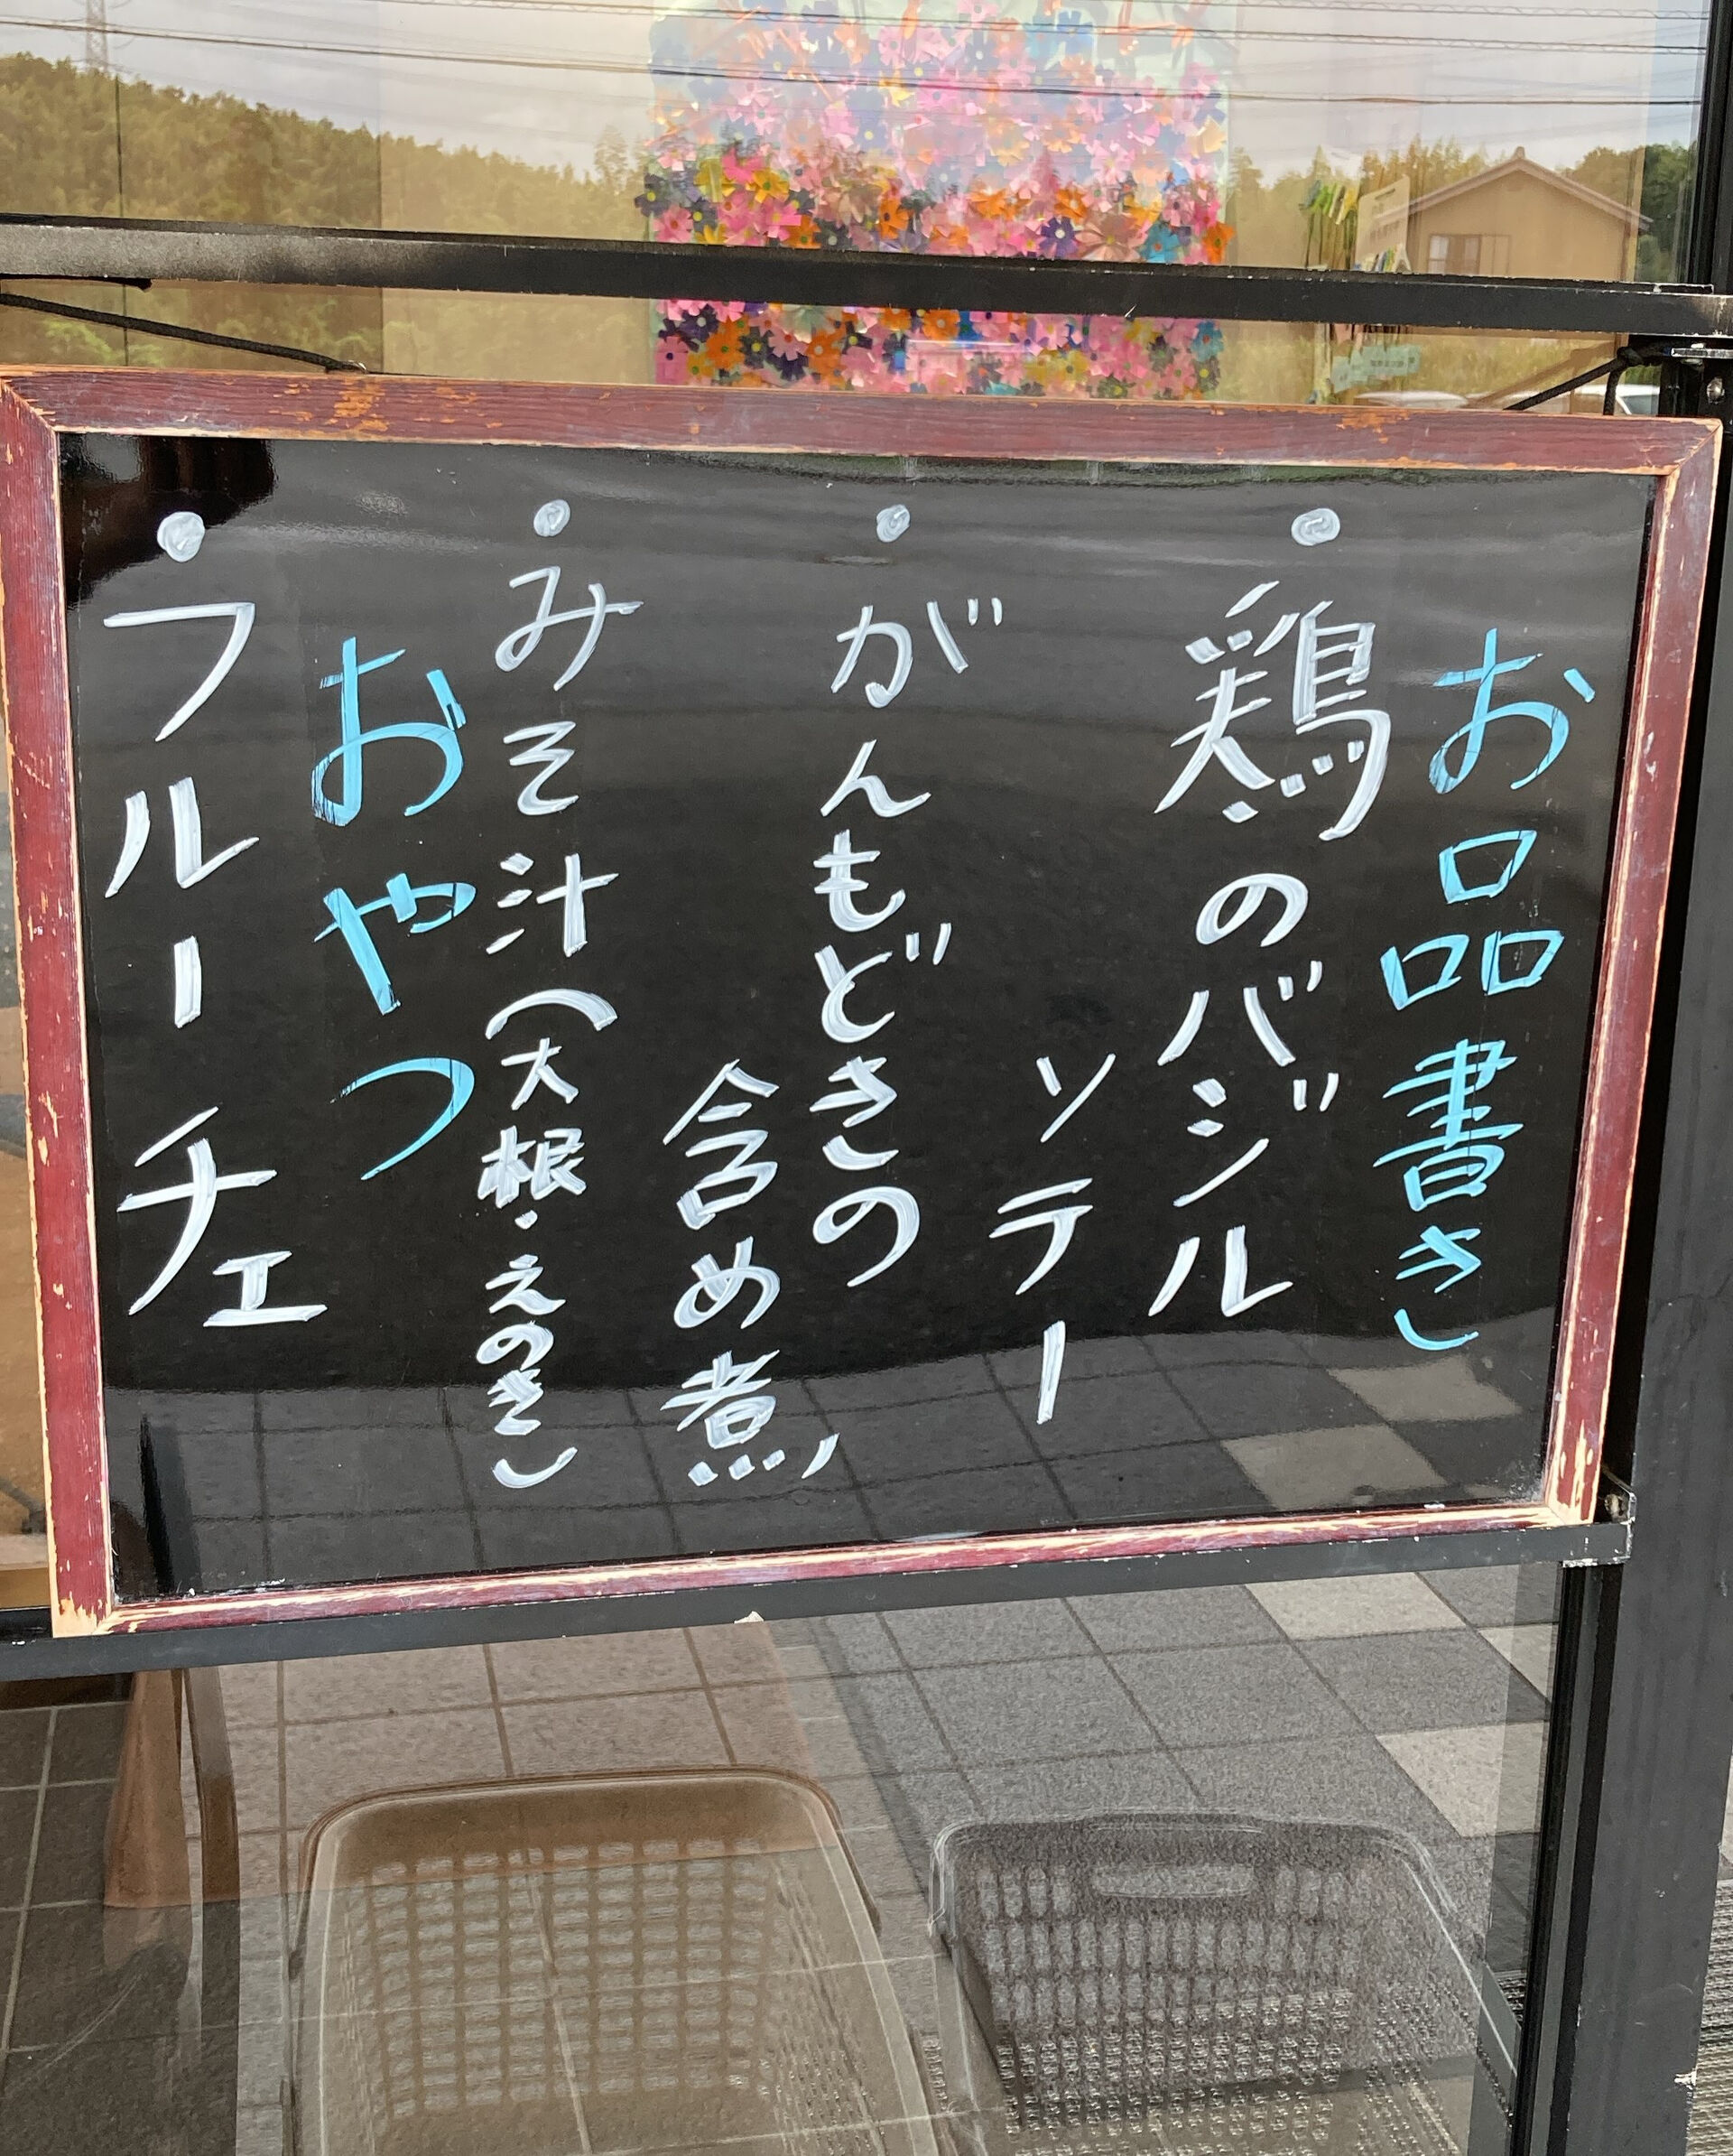 お品書き
・鶏のバジル
ソテー
・がんもどきの
含め煮
・みそ汁(大根・えのき)
おやつ
・フルーチェ